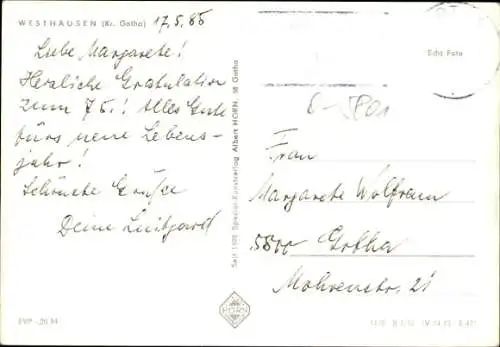 WESTHAUSEN (Kr. Gotha)
17.5.85
Liebe Margarete!
Herzliche Gratulation
zum 75.! Alles Gute
fürs neue Lebens-
jahr!
Schönste Grüße
Deine Luitgard
Seit 1898 Spezial-Kunstverlag Albert HORN, 58 Gotha
HORN
EVP -,20 M
Echt Foto
Frau
Margarete Wolfram
5800 Gotha
Mohrenstr. 21